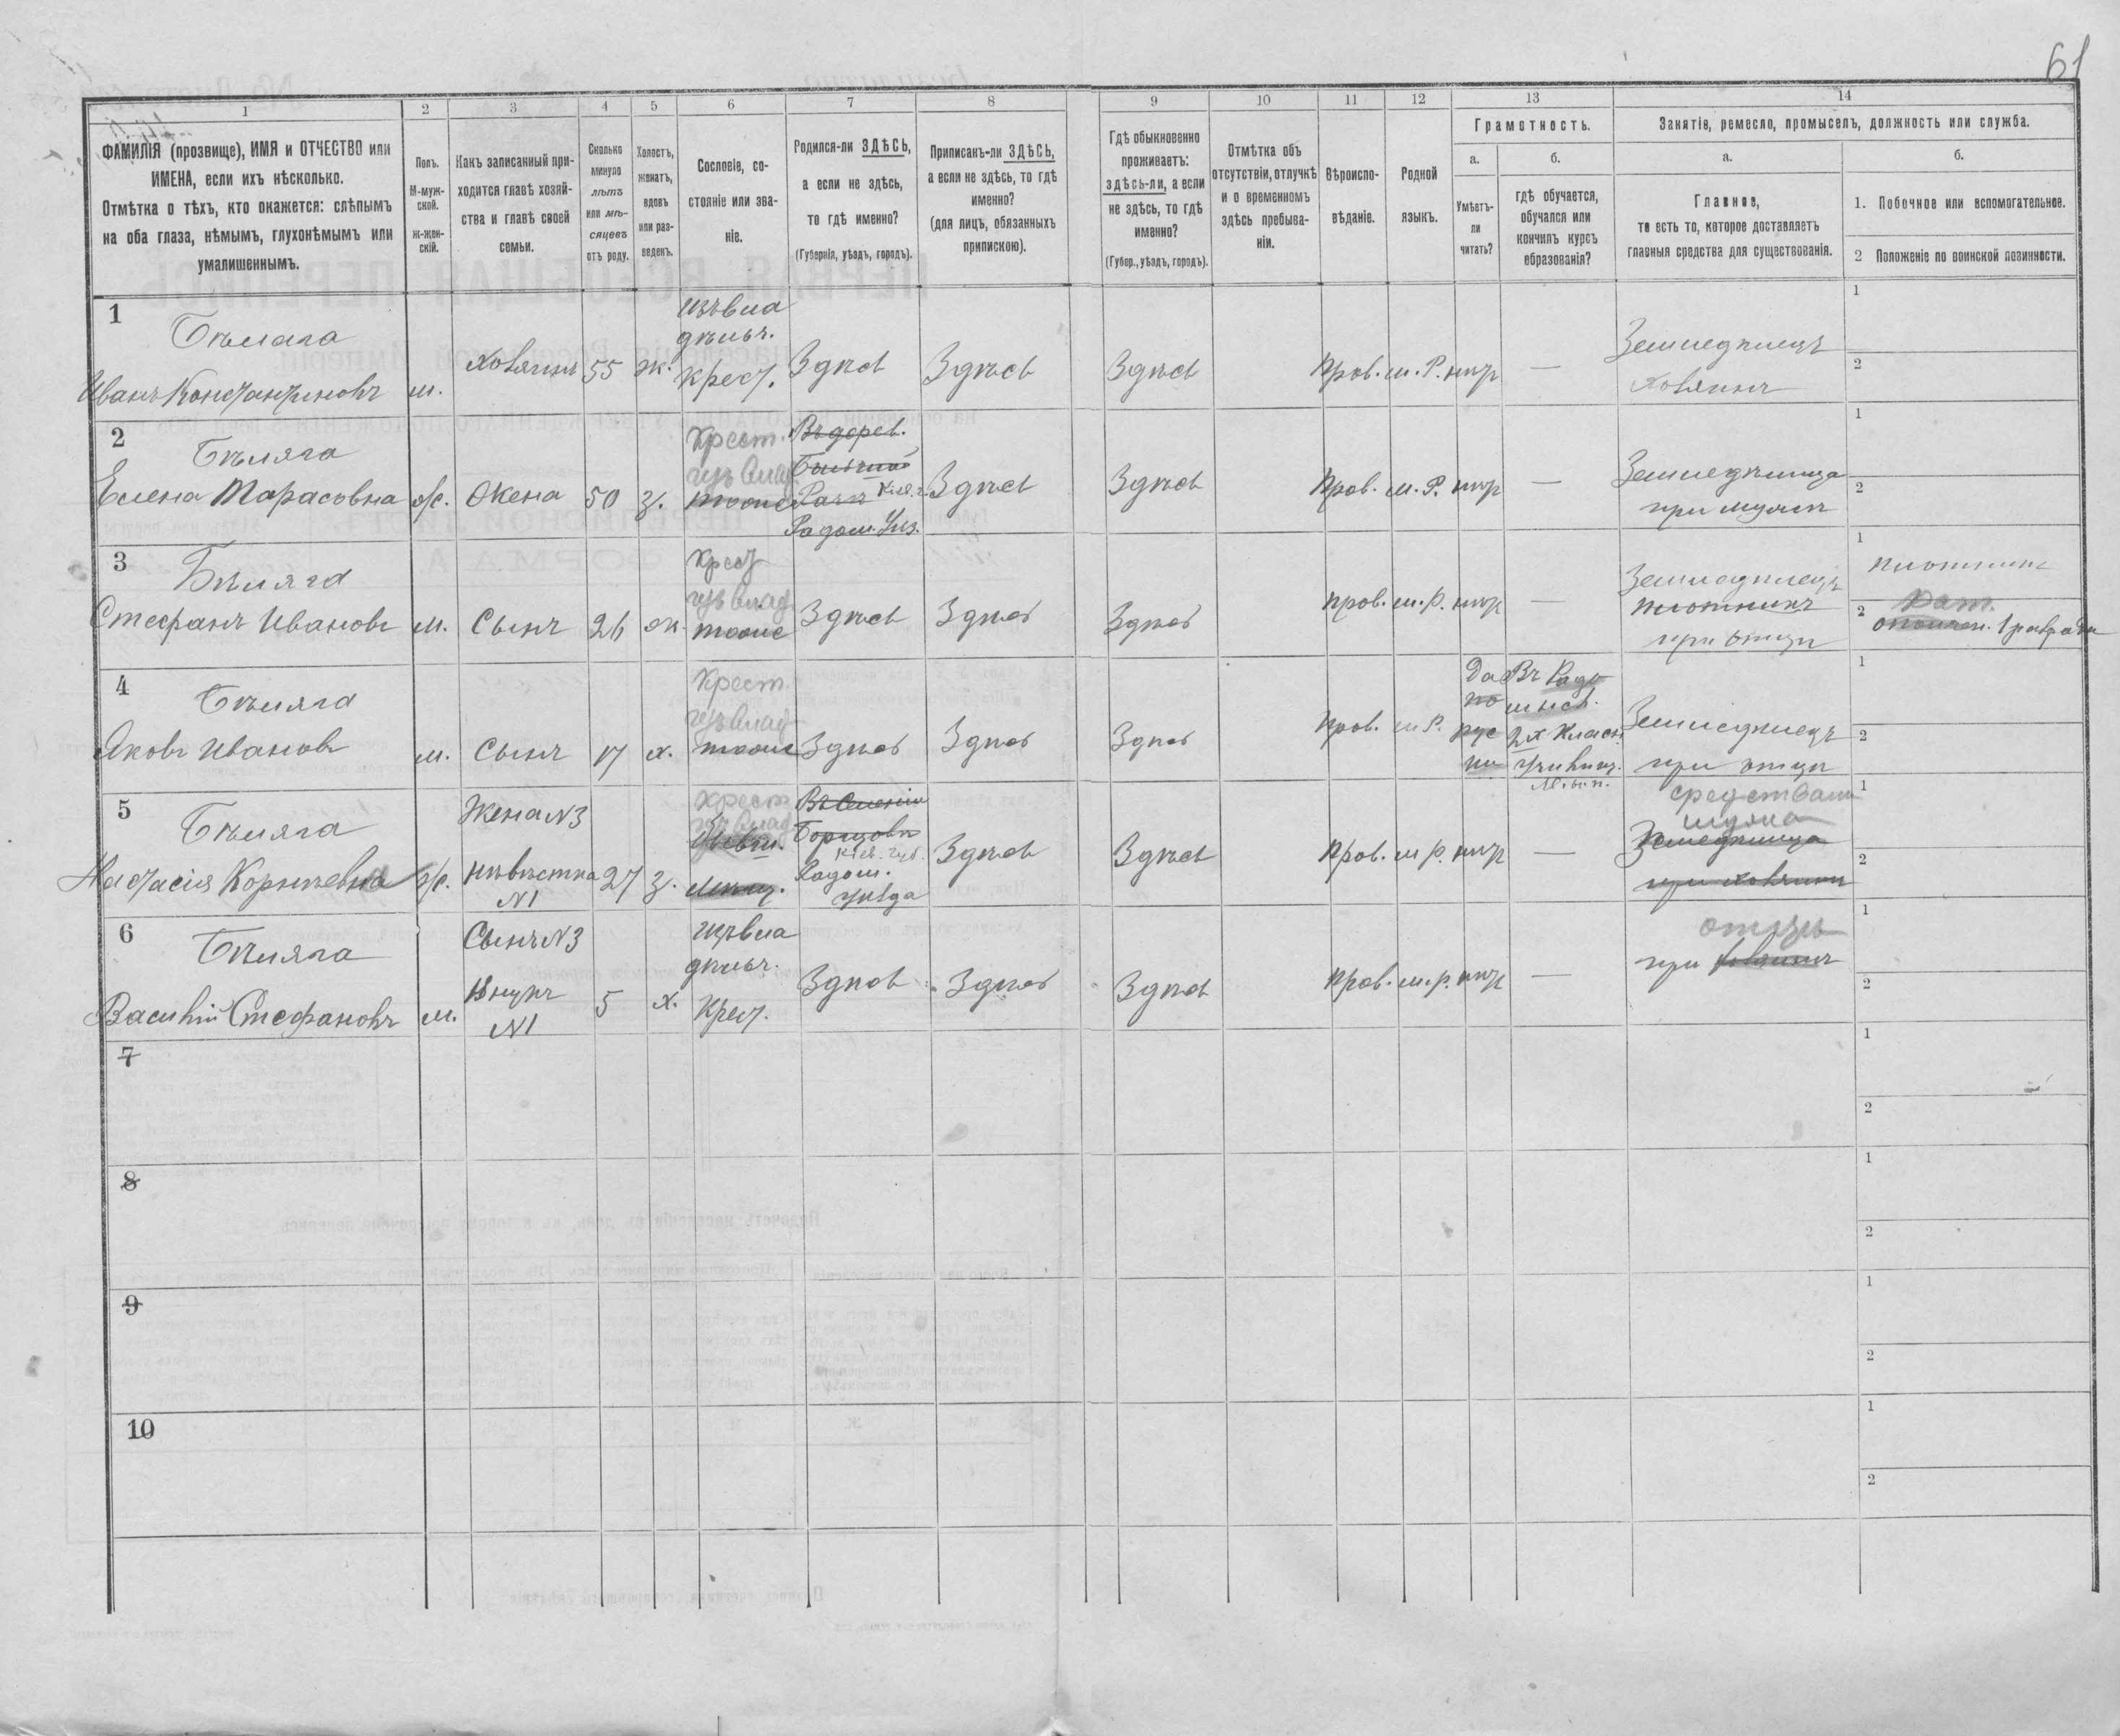 61
1 2 3 4 5 6 7 8 9 10 11 12 13 14
ФАМИЛІЯ (прозвище), ИМЯ и ОТЧЕСТВО или
ИМЕНА, если ихъ нѣсколько.
Отмѣтка о тѣхъ, кто окажется: слѣпымъ
на оба глаза, нѣмымъ, глухонѣмымъ или
умалишеннымъ.
Полъ.
М-муж-
ской.
ж-жен-
скій.
Какъ записанный при-
ходится главѣ хозяй-
ства и главѣ своей
семьи.
Сколько
минуло
лѣтъ
или мѣ-
сяцевъ
отъ роду.
Холостъ,
женатъ,
вдовъ
или раз-
веденъ.
Сословіе, со-
стояніе или зва-
ніе.
Родился-ли ЗДѢСЬ,
а если не здѣсь,
то гдѣ именно?
(Губернія, уѣздъ, городъ).
Приписанъ-ли ЗДѢСЬ,
а если не здѣсь, то гдѣ
именно?
(для лицъ, обязанныхъ
припискою).
Гдѣ обыкновенно
проживаетъ:
здѣсь-ли, а если
не здѣсь, то гдѣ
именно?
(Губер., уѣздъ, городъ).
Отмѣтка объ
отсутствіи, отлучкѣ
и о временномъ
здѣсь пребыва-
ніи.
Вѣроиспо-
вѣданіе.
Родной
языкъ.
Грамотность.
а.
Умѣетъ-
ли
читать?
б.
гдѣ обучается,
обучался или
кончилъ курсъ
образованія?
Занятіе, ремесло, промыселъ, должность или служба.
а.
Главное,
то есть то, которое доставляетъ
главныя средства для существованія.
б.
1. Побочное или вспомогательное.
2 Положеніе по воинской повинности.
1
Бѣляга
Иванъ Константиновъ
м.
Хозяинъ
55
ж.
изъ вла
дѣльч.
крест.
Здѣсь
Здѣсь
Здѣсь
Прав.
м. Р.
нѣтъ
—
Земледѣлецъ
хозяинъ
1
2
2
Бѣляга
Елена Тарасовна
ж.
Жена
50
з.
Крест.
изъ влад
тоже
Въ дерев.
Кіев. г.
Радом. Уѣз.
Здѣсь
Здѣсь
Прав.
м. Р.
нѣтъ
—
Земледѣлица
при мужѣ
1
2
3
Бѣляга
Стефанъ Ивановъ
м.
Сынъ
26
ж.
крест
изъ влад
тоже
Здѣсь
Здѣсь
Здѣсь
прав.
м. р.
нѣтъ
—
Земледѣлецъ
плотникъ
при отцѣ
1
плотникъ
2
Рат.
ополчен. 1 разряда
4
Бѣляга
Яковъ Ивановъ
м.
Сынъ
17
х.
Крест.
изъ влад
тоже
Здѣсь
Здѣсь
Здѣсь
прав.
м. Р.
Да
по
рус
ки
Въ Радо
мысл.
2х класн.
Училищ.
М. н. п.
Земледѣлецъ
при отцѣ
1
2
5
Бѣляга
Настасія Корнѣевна
ж.
Жена N3
невѣстка
N1
27
з.
Крест
изъ влад
Бывш.
Мѣщ.
Въ Селеніи
Борщовѣ
Кіев. Губ.
Радом.
Уѣзда
Здѣсь
Здѣсь
Прав.
м. р.
нѣтъ
—
средствами
мужа
Земледѣлица
при хозяинѣ
1
2
6
Бѣляга
Василій Стефановъ
м.
Сынъ N3
Внукъ
N1
5
х.
изъ вла
дѣльч.
Крест.
Здѣсь
Здѣсь
Здѣсь
прав.
м. р.
нѣтъ
—
отцѣ
при хозяинѣ
1
2
7
1
2
8
1
2
9
1
2
10
1
2